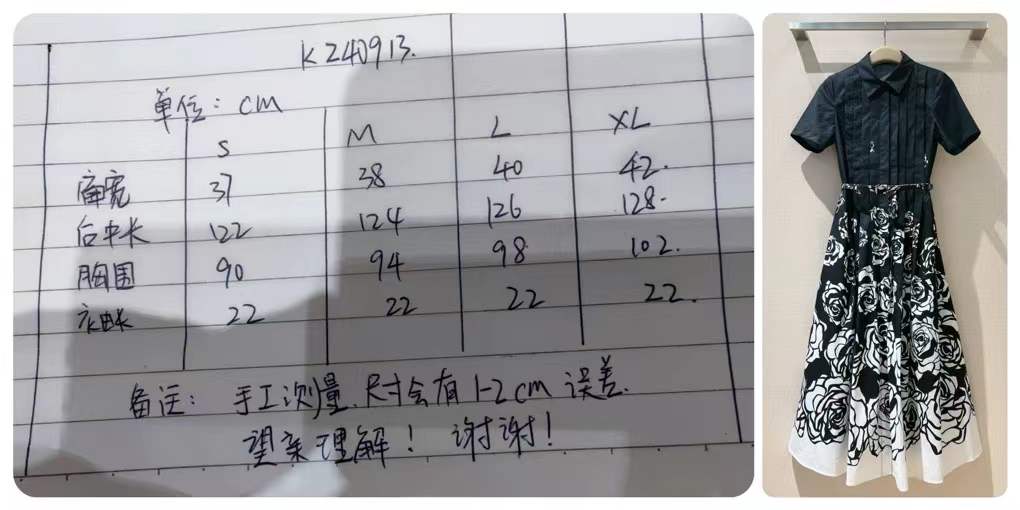 K240913.
单位：cm
S M L XL
肩宽 37 38 40 42.
后中长 122 124 126 128.
胸围 90 94 98 102.
衣袖长 22 22 22 22.
备注：手工测量.尺寸会有1-2cm误差.
望亲理解！谢谢！